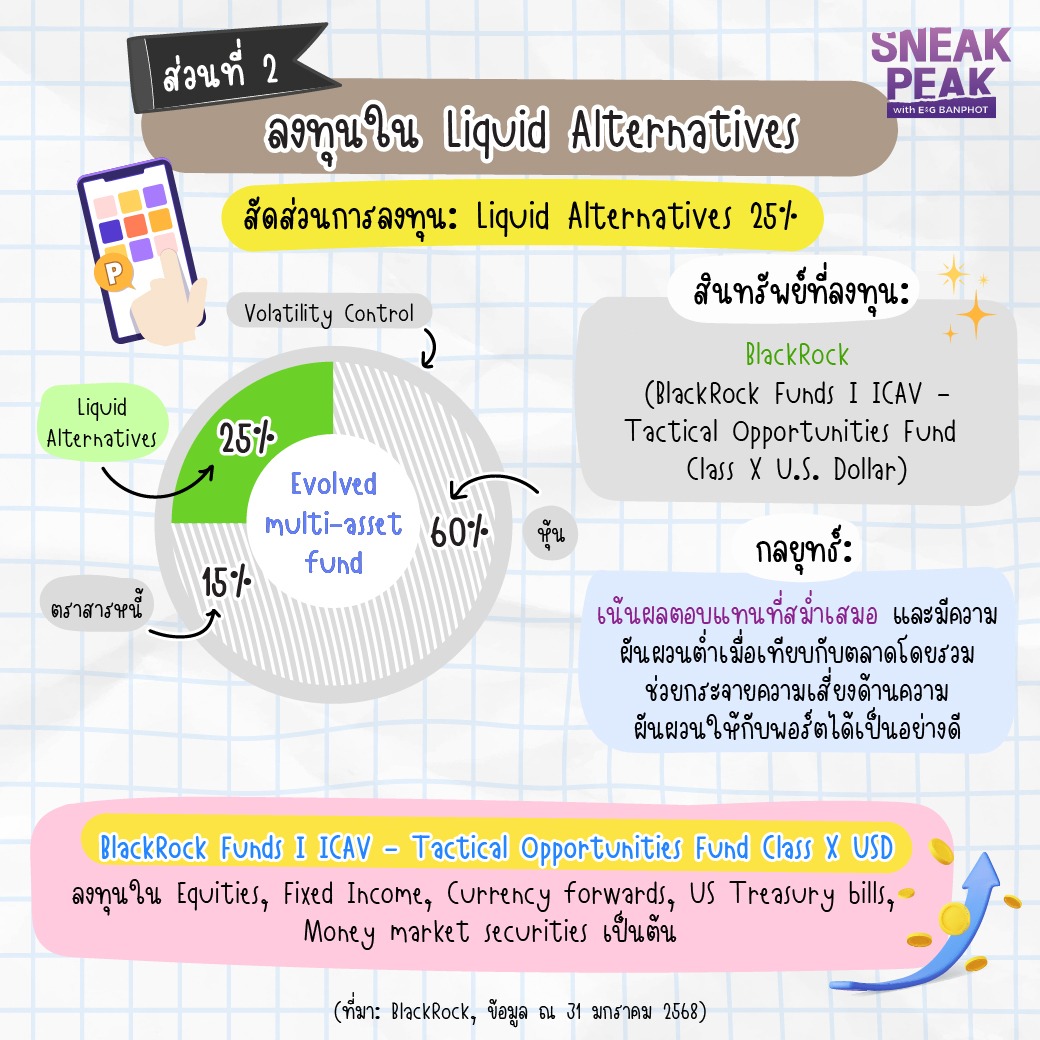 ส่วนที่ 2
SNEAK
PEAK
with E&G BANPHOT
ลงทุนใน Liquid Alternatives
สัดส่วนการลงทุน: Liquid Alternatives 25%
P
สินทรัพย์ที่ลงทุน:
BlackRock
(BlackRock Funds I ICAV -
Tactical Opportunities Fund
Class X U.S. Dollar)
Volatility Control
Liquid
Alternatives
25%
Evolved
multi-asset
fund
60%
หุ้น
15%
ตราสารหนี้
กลยุทธ์:
เน้นผลตอบแทนที่สม่ำเสมอ และมีความ
ผันผวนต่ำเมื่อเทียบกับตลาดโดยรวม
ช่วยกระจายความเสี่ยงด้านความ
ผันผวนให้กับพอร์ตได้เป็นอย่างดี
BlackRock Funds I ICAV - Tactical Opportunities Fund Class X USD
ลงทุนใน Equities, Fixed Income, Currency forwards, US Treasury bills,
Money market securities เป็นต้น
(ที่มา: BlackRock, ข้อมูล ณ 31 มกราคม 2568)